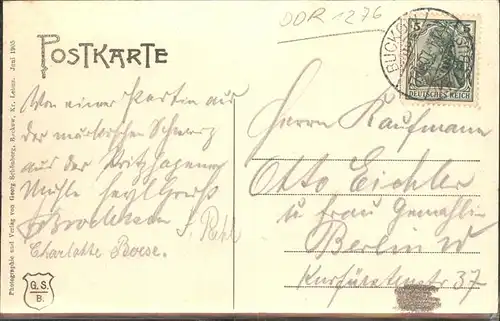 DDR 1276
POSTKARTE
BUCKOW
5 5
DEUTSCHES REICH
Von einer Partie aus
der märkischen Schweiz
aus der Pritzhagener
Mühle herzl. Grüße
Charlotte Boese.
Herrn Kaufmann
Otto Eichler
u frau Gemahlin
Berlin W
Kurfürstenstr 37
Photographie und Verlag von Georg Schönberg, Buckow, Kr. Lebus. Juni 1905
G. S.
B.